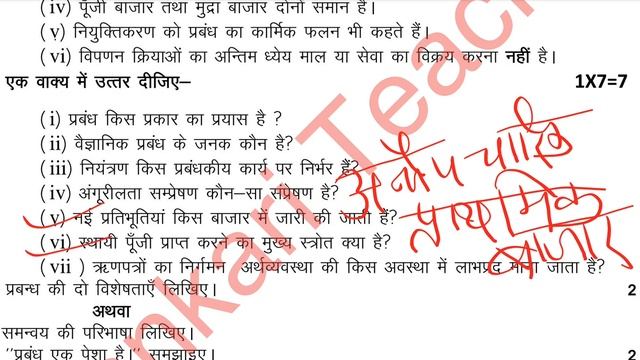 (iv) पूँजी बाजार तथा मुद्रा बाजार दोनों समान है।
(v) नियुक्तिकरण को प्रबंध का कार्मिक फलन भी कहते हैं।
(vi) विपणन क्रियाओं का अन्तिम ध्येय माल या सेवा का विक्रय करना नहीं है।
एक वाक्य में उत्तर दीजिए– 1X7=7
(i) प्रबंध किस प्रकार का प्रयास है ?
(ii) वैज्ञानिक प्रबंध के जनक कौन है?
(iii) नियंत्रण किस प्रबंधकीय कार्य पर निर्भर हैं?
(iv) अंगूरीलता सम्प्रेषण कौन–सा संप्रेषण है?
अनौपचारिक
(v) नई प्रतिभूतियां किस बाजार में जारी की जाती हैं?
प्राथमिक
बाजार
(vi) स्थायी पूँजी प्राप्त करने का मुख्य स्त्रोत क्या है?
(vii ) ऋणपत्रों का निर्गमन अर्थव्यवस्था की किस अवस्था में लाभप्रद माना जाता है?
प्रबन्ध की दो विशेषताएँ लिखिए। 2
अथवा
समन्वय की परिभाषा लिखिए।
"प्रबंध एक पेशा है।" समझाइए। 2